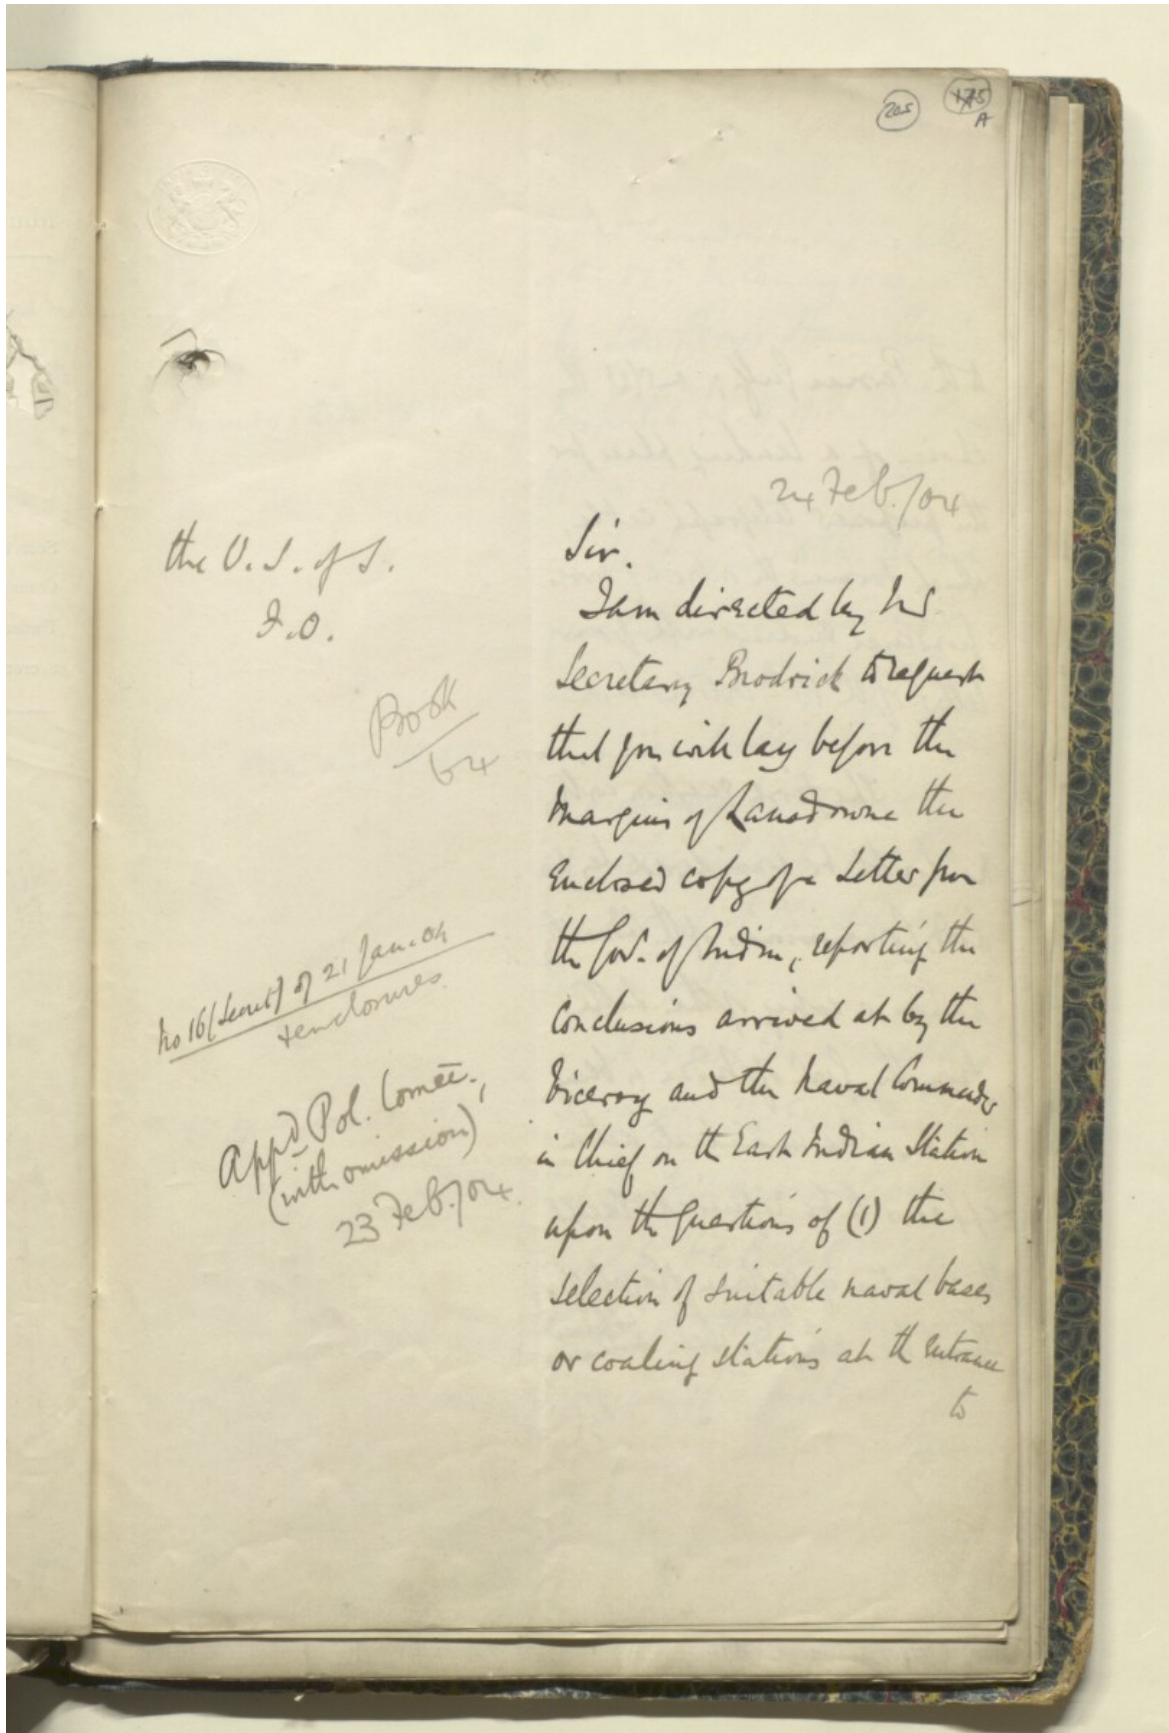 205
175
A
24 Feb./04
the U.S. of S.
F.O.
Book
64
No 16 (Secret) of 21 Jan. 04
+ enclosures.
Appd Pol. Comee.,
(with omission)
23 Feb./04.
Sir.
I am directed by Mr
Secretary Brodrick to request
that you will lay before the
Marquis of Lansdowne the
Enclosed copy of a Letter from
the Govt. of India, reporting the
Conclusions arrived at by the
Viceroy and the Naval Commander
in Chief on the East Indian Station
upon the questions of (1) the
selection of suitable naval bases
or coaling stations at the entrance
to